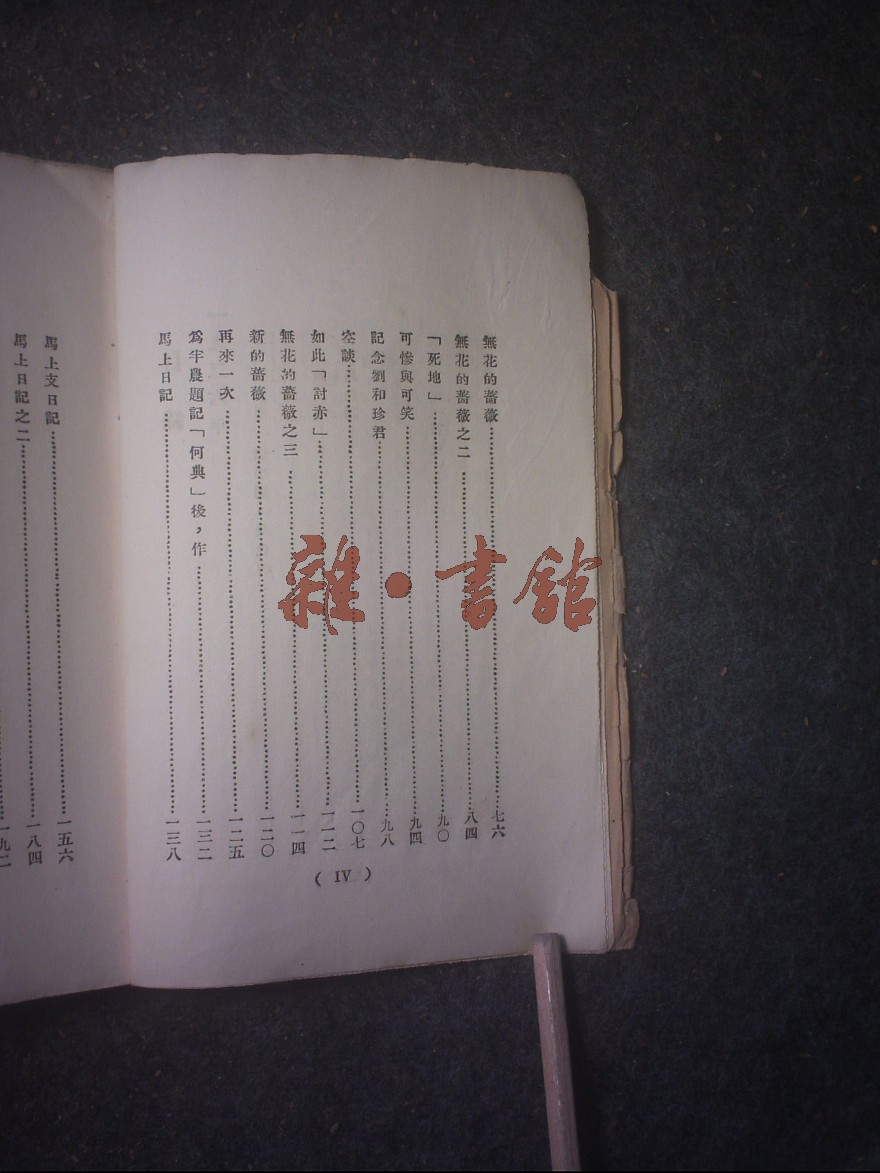 無花的薔薇……七六
無花的薔薇之二……八四
「死地」……九〇
可慘與可笑……九四
記念劉和珍君……九八
空談……一〇七
如此「討赤」……一一二
無花的薔薇之三……一一四
新的薔薇……一二〇
再來一次……一二五
爲半農題記「何典」後，作……一三二
馬上日記……一三八
( IV )
馬上支日記……一五六
馬上日記之二……一八四
一九二
雜・書館